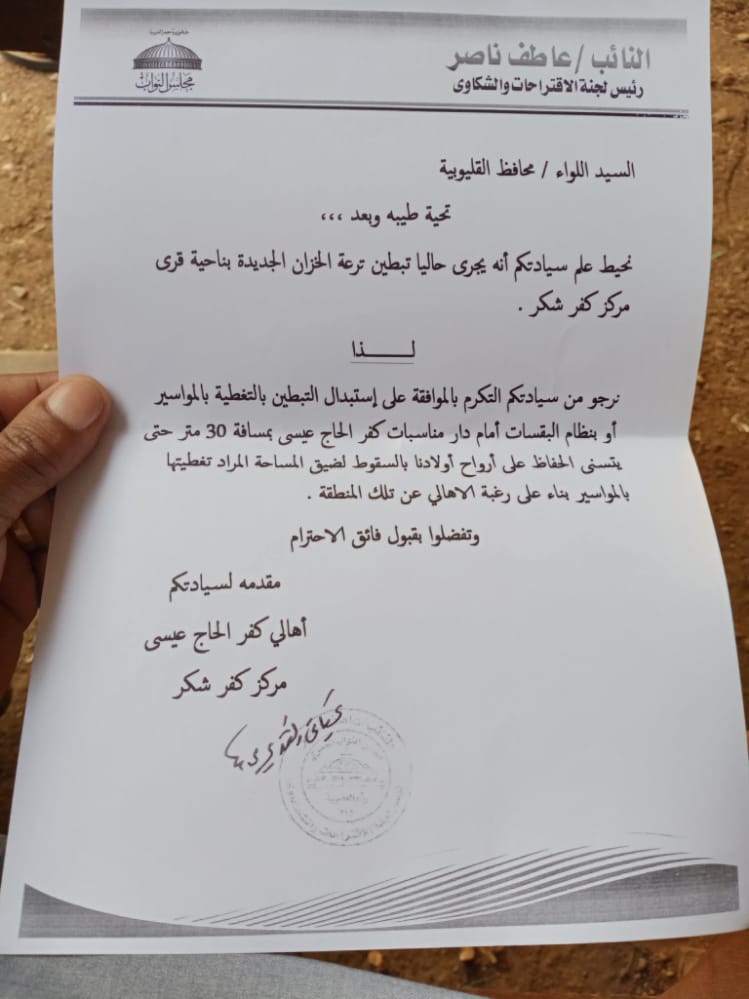 النائب / عاطف ناصر
رئيس لجنة الاقتراحات والشكاوى
مجلس النواب
السيد اللواء / محافظ القليوبية
تحية طيبه وبعد ،،،
نحيط علم سيادتكم أنه يجرى حاليا تبطين ترعة الخزان الجديدة بناحية قرى
مركز كفر شكر .
لـــــذا
نرجو من سيادتكم التكرم بالموافقة على إستبدال التبطين بالتغطية بالمواسير
أو بنظام البقسات أمام دار مناسبات كفر الحاج عيسى بمسافة 30 متر حتى
يتسنى الحفاظ على أرواح أولادنا بالسقوط لضيق المساحة المراد تغطيتها
بالمواسير بناء على رغبة الاهالي عن تلك المنطقة .
وتفضلوا بقبول فائق الاحترام
مقدمه لسيادتكم
أهالي كفر الحاج عيسى
مركز كفر شكر